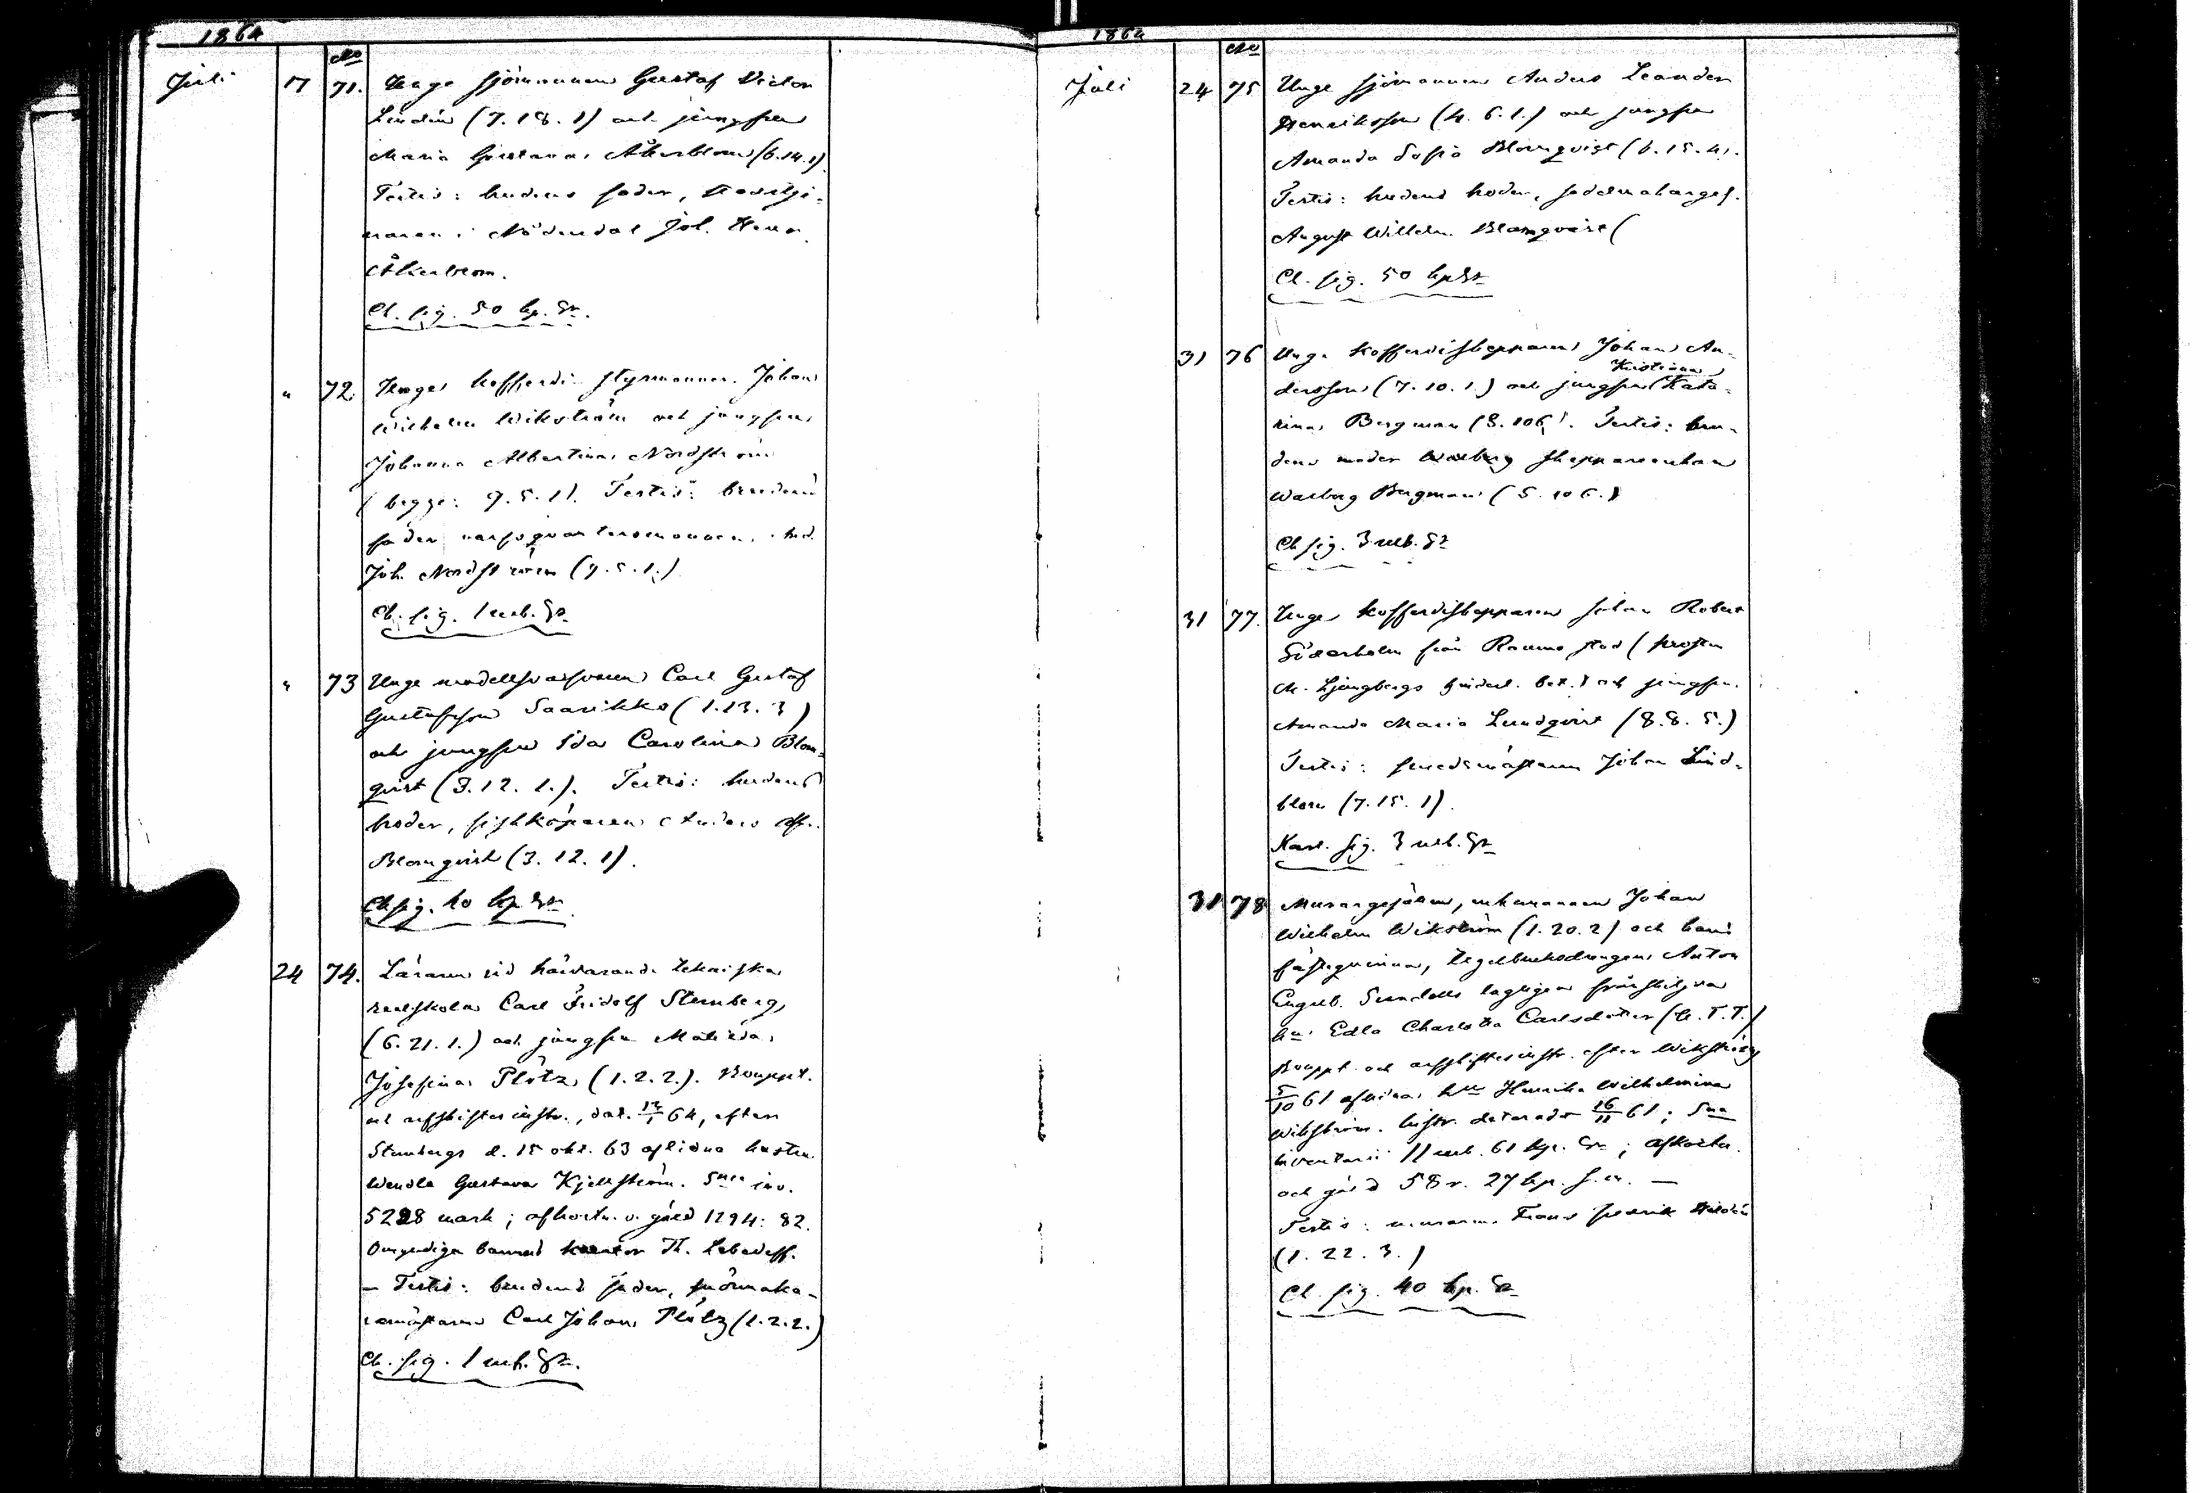 1864
No
Juli 17 71. Unge sjömannen Gustaf Victor
Lindén (7.18.1) och jungfrun
Maria Gustava Åkerblom (6.14.1)
Testis: brudens fader,
i Nådendal Joh. Henr.
Åkerblom.
Cl. sig. 50 kp. Sr.
" 72. Unge kofferdi styrmannen Johan
Wilhelm Wikström och jungfrun
Johanna Albertina Nordström
(begge: 9.5.1). Testis: brudens
fader
Joh. Nordström (9.5.1.)
Cl. sig. 1 rub. Sr.
" 73 Unge Carl Gustaf
Gustafsson Saarikko (1.13.3)
och jungfrun Ida Carolina Blom-
qvist (3.12.1.). Testis: brudens
broder, fiskköparen Anders
Blomqvist (3.12.1).
Cl sig. 40 kp Sr.
24 74. Läraren vid härvarande
realskola Carl Fridolf Sternberg
(6.21.1.) och jungfrun Matilda
Josefina Plötz (1.2.2.). Bouppt.
och arfskiftesinstr., dat. 64, efter
Sternbergs d. 15 okt. 63 aflidna hustru
Wendla Gustava Kjellström. inv.
5228 mark; afkortn. o. gäld 1294: 82.
Omyndiga barnens kurator Th. Lebedeff.
— Testis: brudens fader, snörmaka-
remästaren Carl Johan Plötz (1.2.2.)
Cl. sig. 1 rub. Sr.
1864
No
Juli 24 75 Unge sjömannen Anders Leander
Henriksson (4.6.1.) och jungfrun
Amanda Sofia Blomqvist (6.15.4).
Testis: brudens broder, sadelmakareges.
August Wilhelm Blomqvist (
Cl. sig. 50 kp Sr
31 76 Unge kofferdiskepparen Johan An-
dersson (7.10.1.) och jungfrun Kata-
Kristina
rina Bergman (S. 106). Testis: bru-
dens moder skepparenkan
Walborg Bergman (S. 106.)
Cl sig. 3 rub. Sr
31 77. Unge kofferdiskepparen Johan Robert
Söderholm från Raumo stad (prosten
M. Ljungbergs hinderl. bet.) och jungfrun
Amanda Maria Lundqvist (8.8.5.)
Testis: smedsmästaren Johan Lind-
blom (7.15.1).
Karl. sig. 3 rub. Sr
31 78 Muraregesällen, enkemannen Johan
Wilhelm Wikström (1.20.2) och hans
fästeqvinna, tegelbruksdrengen Anton
Engelb. Sundells lagligen frånskiljda
hu. Edla Charlotta Carlsdotter (U.T.T.)
Bouppt. och arfskiftesinstr. efter Wikströms
5/10 61 aflidna hu Henrika Wilhelmina
Wikström. Instr. daterad 16/11 61; Sma
inventarii 11 rub. 61 kp. Sr; afkortn.
och gäld 58 r. 27 kp. s.m. —
Testis: muraren Frans Fredrik
(1.22.3.)
Cl. sig. 40 kp. Sr